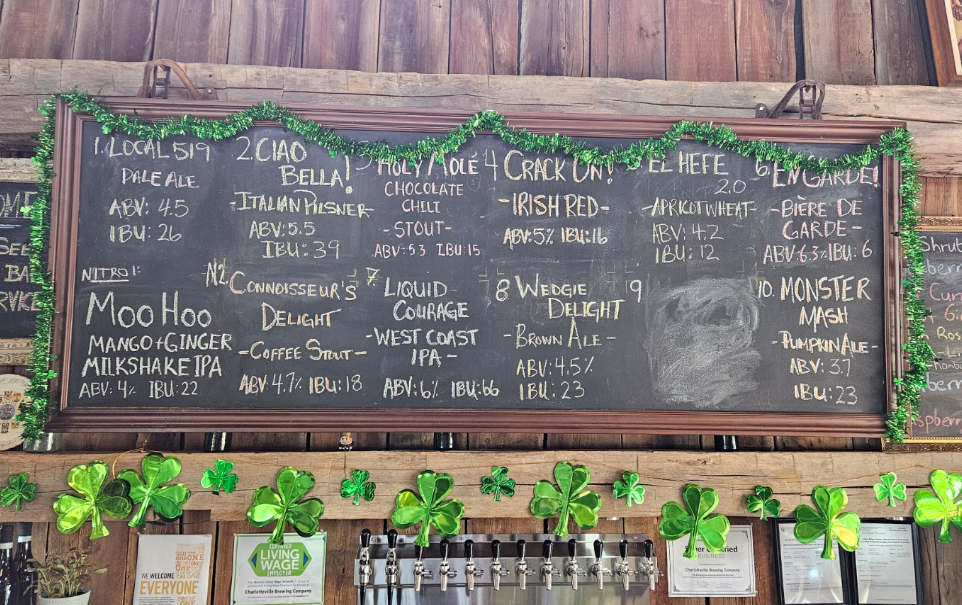 1. LOCAL 519
PALE ALE
ABV: 4.5
IBU: 26
2. CIAO
BELLA!
-ITALIAN PILSNER-
ABV: 5.5
IBU: 39
3 HOLY MOLÉ
CHOCOLATE
CHILI
-STOUT-
ABV: 5.3 IBU: 15
4 CRACK ON!
-IRISH RED-
ABV: 5% IBU: 16
EL HEFE
2.0
-APRICOT WHEAT-
ABV: 4.2
IBU: 12
6. EN GARDE!
-BIÈRE DE
GARDE-
ABV: 6.3% IBU: 6
NITRO 1:
MOO HOO
MANGO + GINGER
MILKSHAKE IPA
ABV: 4% IBU: 22
N2. CONNOISSEUR'S
DELIGHT
-COFFEE STOUT-
ABV: 4.7% IBU: 18
7 LIQUID
COURAGE
-WEST COAST
IPA-
ABV: 6% IBU: 66
8 WEDGIE
DELIGHT
-BROWN ALE-
ABV: 4.5%
IBU: 23
9
10. MONSTER
MASH
-PUMPKIN ALE-
ABV: 3.7
IBU: 23
WE WELCOME
EVERYONE
LIVING
WAGE
EMPLOYER
Charlotteville Brewing Company